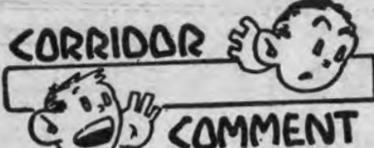 CORRIDOR
COMMENT